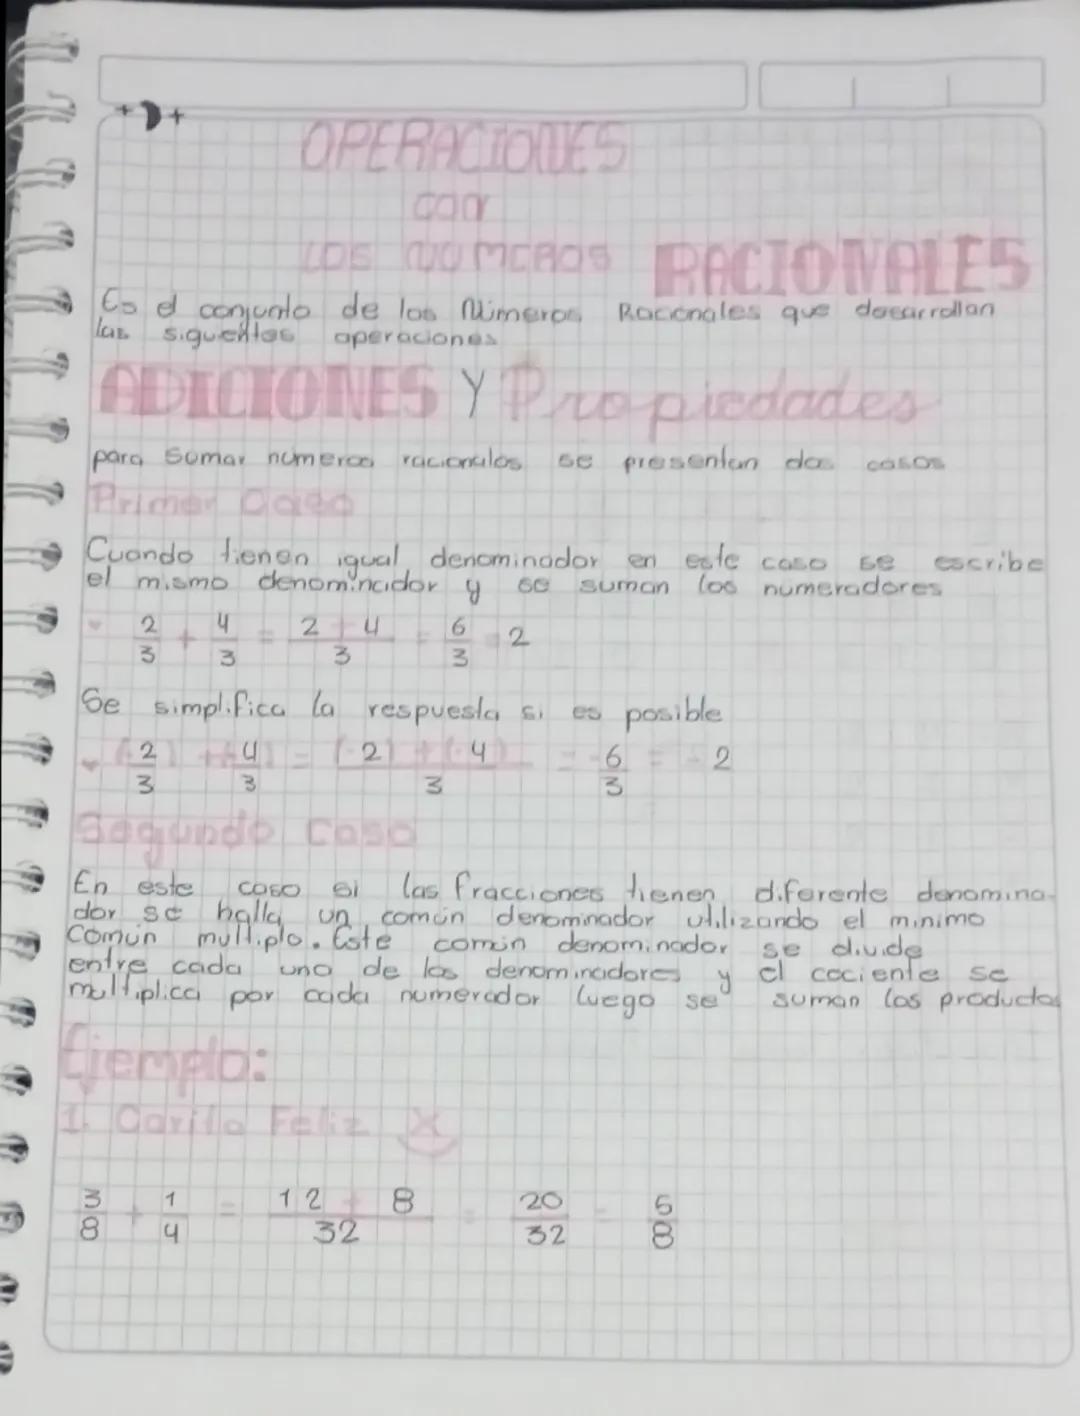 OPERACIONES
con
LOS NUMEROS RACIONALES
Es el conjunto de los Números Racionales que desarrollan
las siguentes operaciones
ADICIONES Y Propiedades
para sumar numeros racionales se presentan dos casos
Primer Caso
Cuando tienen igual denominador en este caso se escribe
el mismo denominador y se suman los numeradores
2/3 + 4/3 = 2 + 4/3 = 6/3 = 2
Se simplifica la respuesta si es posible
(-2)/3 + (-4)/3 = (-2) + (-4)/3 = -6/3 = -2
Segundo Caso
En este caso si las fracciones tienen diferente denomina-
dor se halla un común denominador utilizando el minimo
Común multiplo. Este común denominador se divide
entre cada uno de los denominadores y el cociente se
multiplica por cada numerador luego se suman los productos
Ejemplo:
1. Carita Feliz X
3/8 + 1/4 = 12 + 8/32 = 20/32 = 5/8